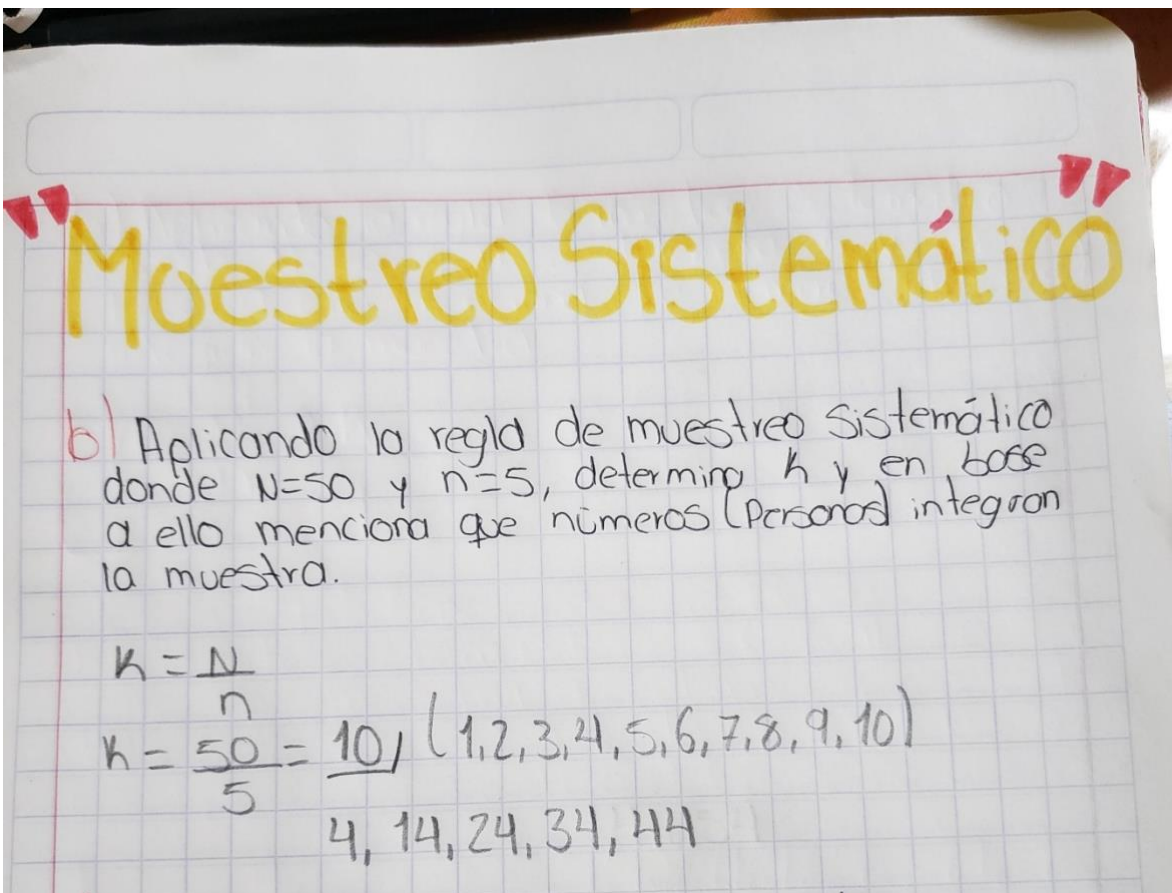 "Muestreo Sistemático"
b) Aplicando la regla de muestreo sistemático
donde N=50 y n=5, determina K y en base
a ello menciona que números (Personas) integran
la muestra.
K = N
n
K = 50 = 10, (1,2,3,4,5,6,7,8,9,10)
5
4, 14, 24, 34, 44